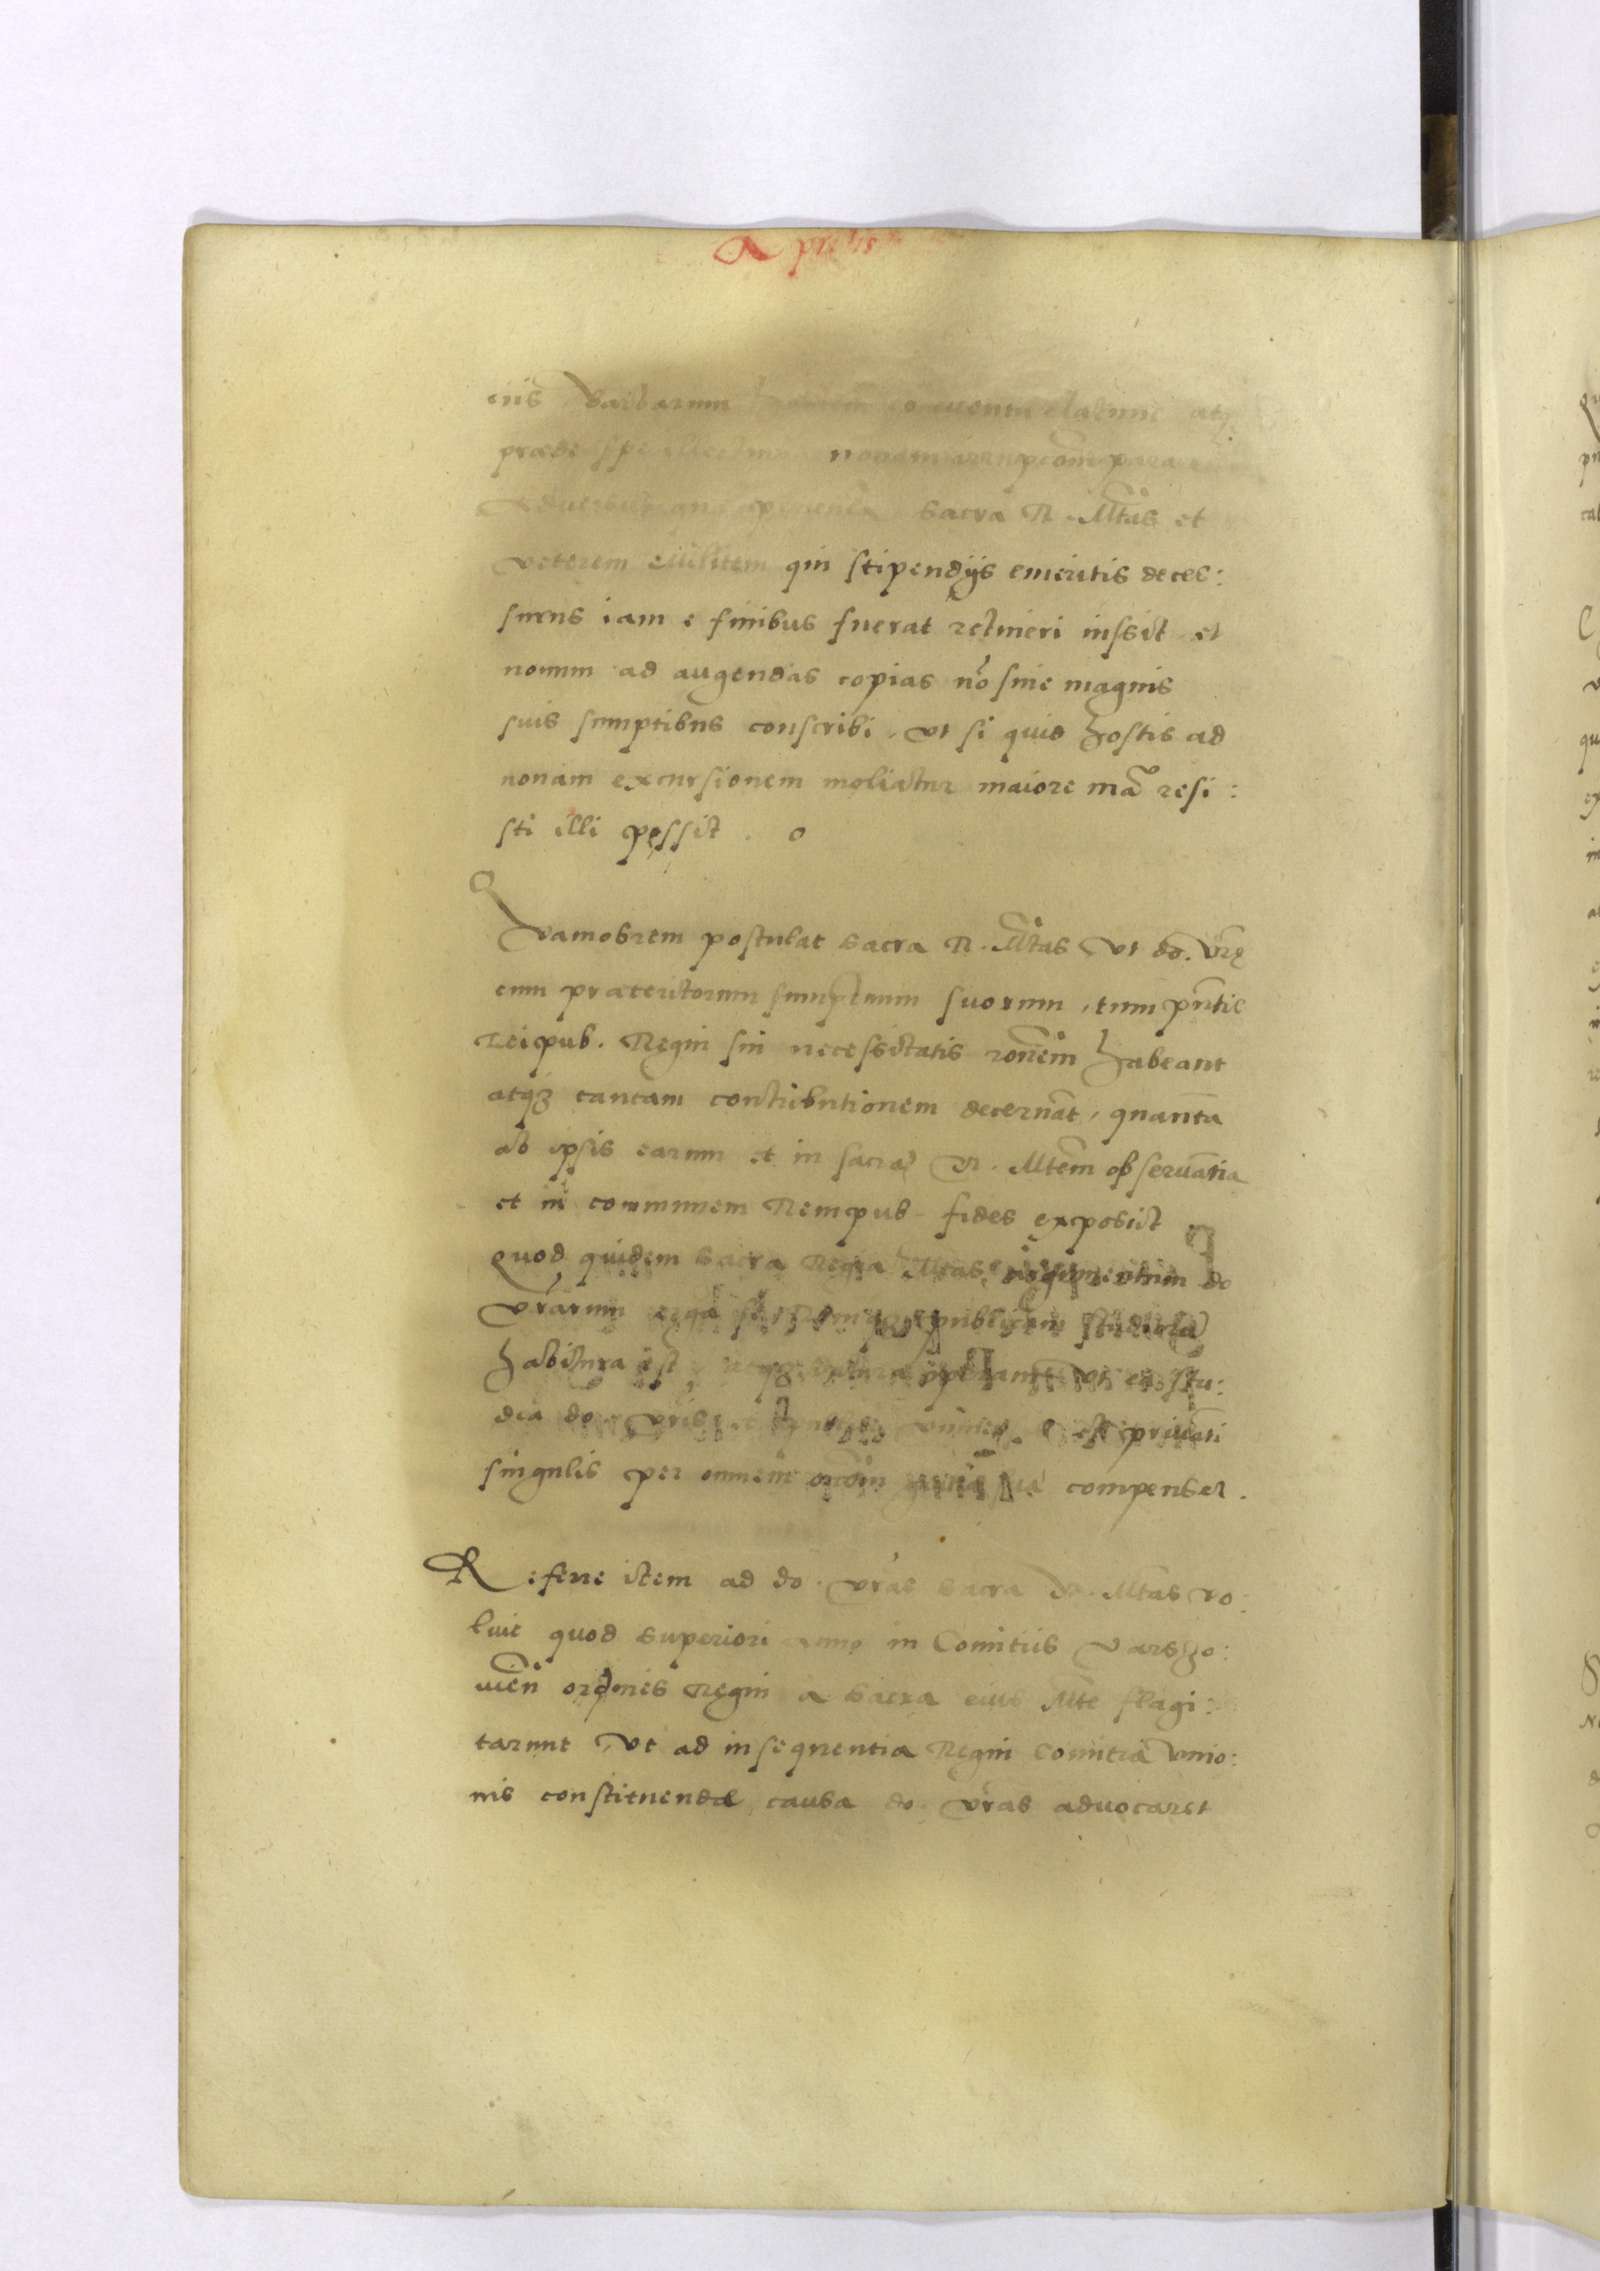 A
ciis Barbarum eventu elatum atq;
prædæ spe novam
Sacra R. Mtas et
veterem militem qui stipendijs emeritis deces:
surus iam e finibus fuerat retineri iussit et
nouum ad augendas copias nõ sine magnis
suis sumptibus conscribi, vt si quid hostis ad
nouam excursionem moliatur maiore mã resi:
sti illi possit . o
Quamobrem postulat Sacra R. Mtas vt do. vrę
cum præteritorum sumptuum suorum, tum pñtis
Reipub. Regni sui necessitatis rõnem habeant
atq3 tantam contributionem decernãt, quantã
ab ipsis earum et in sacrã R. Mtem obseruãtia
et in communem Rempub. fides exposcit
quod quidem Sacra Regia Mtas argumentum do
vrarum erga se Remq3 publicam studiorũ
habitura est operam vt ea stu:
dia do. vris et priuãti
singulis per omnem compenset.
Referre item ad do. vras Sacra R. Mtas vo:
luit quod superiori anno in Comitiis Varszo:
uień ordines Regni a Sacra eius Mte flagi:
tarunt vt ad insequentia Regni Comitia vnio:
nis constituendæ causa do. vras aduocaret